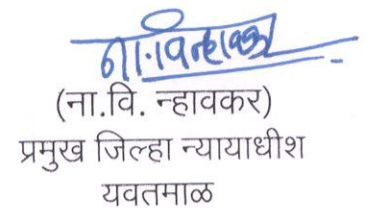 ना.वि. न्हावकर
(ना.वि. न्हावकर)
प्रमुख जिल्हा न्यायाधीश
यवतमाळ